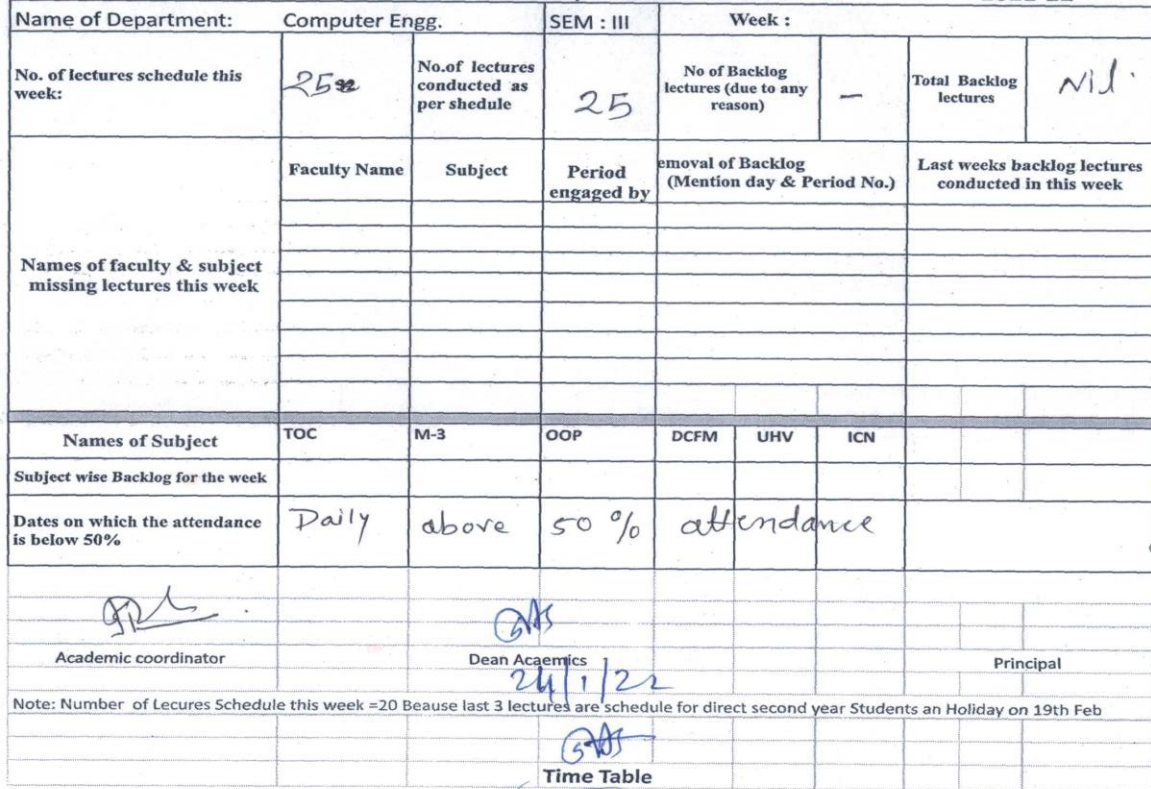 Name of Department: Computer Engg. SEM : III Week :
No. of lectures schedule this week: 25 No.of lectures conducted as per shedule 25 No of Backlog lectures (due to any reason) – Total Backlog lectures Nil
Faculty Name Subject Period engaged by emoval of Backlog (Mention day & Period No.) Last weeks backlog lectures conducted in this week
Names of faculty & subject missing lectures this week
Names of Subject TOC M-3 OOP DCFM UHV ICN
Subject wise Backlog for the week
Dates on which the attendance is below 50% Daily above 50 % attendance
Academic coordinator Dean Acaemics Principal
24/1/22
Note: Number of Lecures Schedule this week =20 Beause last 3 lectures are schedule for direct second year Students an Holiday on 19th Feb
Time Table